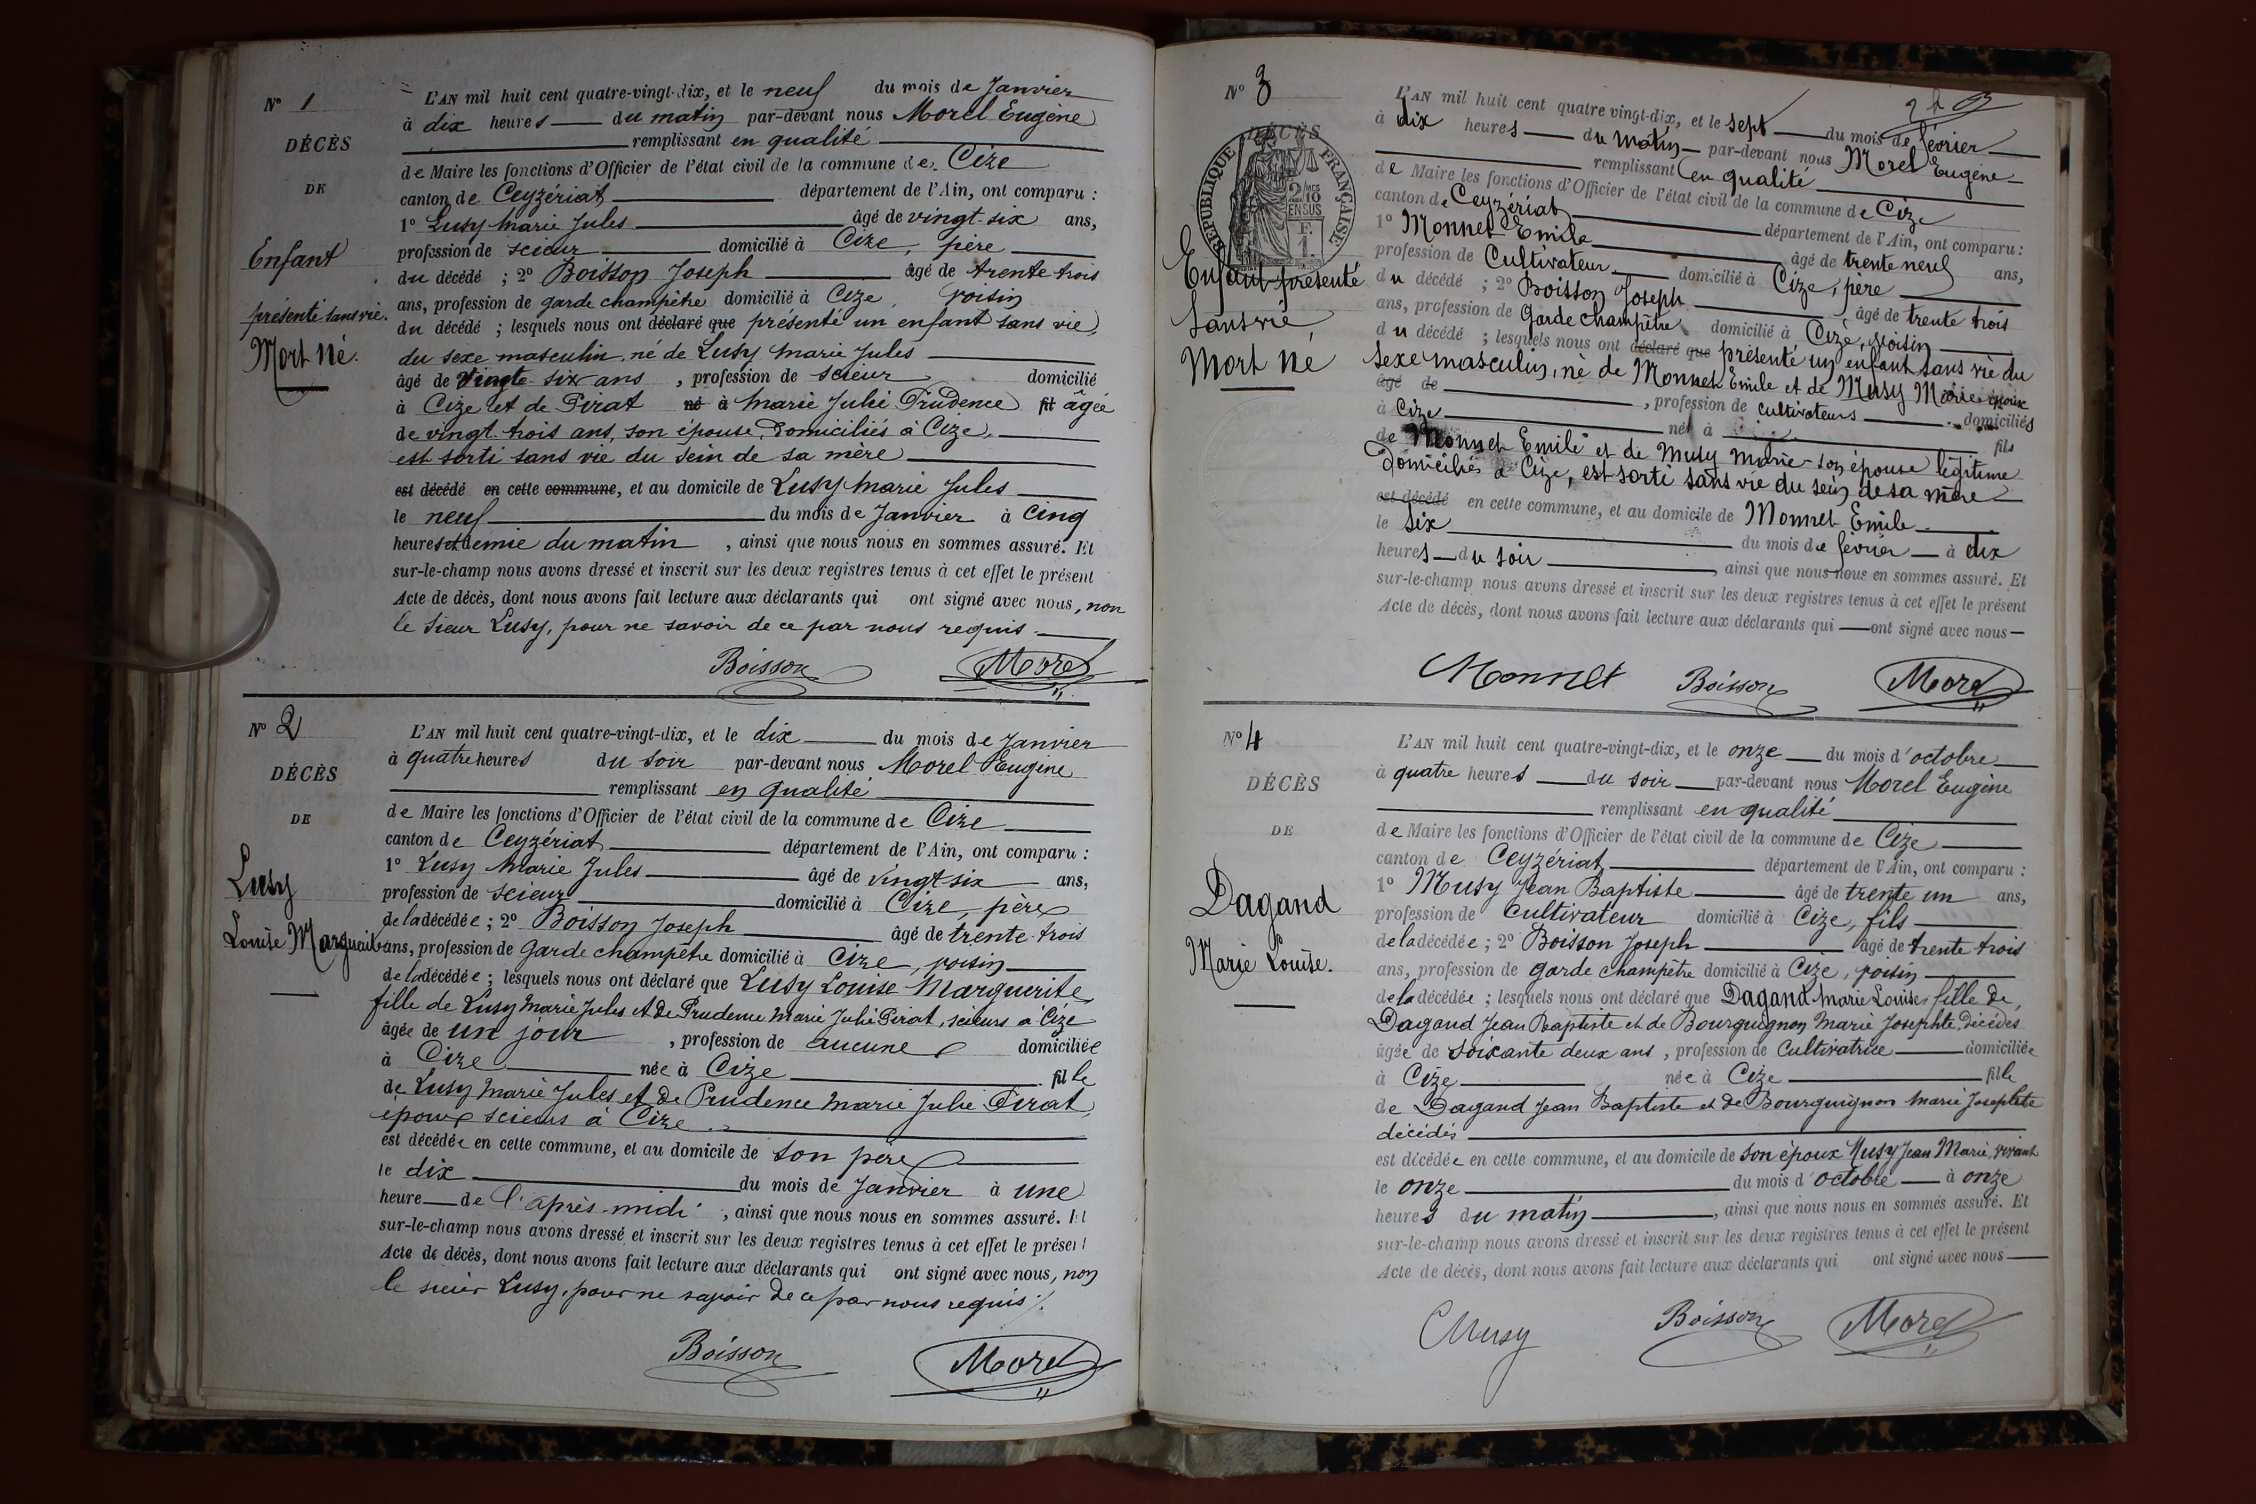 N° 1
DÉCÈS
DE
Enfant
présenté sans vie.
Mort né.
L'AN mil huit cent quatre-vingt-dix, et le neuf du mois de Janvier
à dix heures du matin par-devant nous Morel Eugène
remplissant en qualité
de Maire les fonctions d'Officier de l'état civil de la commune de Cize
canton de Ceyzériat département de l'Ain, ont comparu :
1° Lusy Marie Jules âgé de vingt six ans,
profession de scieur domicilié à Cize, père
du décédé ; 2° Boisson Joseph âgé de trente trois
ans, profession de garde champêtre domicilié à Cize, voisin
du décédé ; lesquels nous ont déclaré que présenté un enfant sans vie,
du sexe masculin, né de Lusy Marie Jules
âgé de vingt six ans , profession de scieur domicilié
à Cize et de Pirat né à Marie Julie Prudence fil âgée
de vingt-trois ans, son épouse, domiciliés à Cize,
est sorti sans vie du sein de sa mère
est décédé en cette commune, et au domicile de Lusy Marie Jules
le neuf du mois de Janvier à cinq
heures et demie du matin , ainsi que nous nous en sommes assuré. Et
sur-le-champ nous avons dressé et inscrit sur les deux registres tenus à cet effet le présent
Acte de décès, dont nous avons fait lecture aux déclarants qui ont signé avec nous, non
le sieur Lusy, pour ne savoir de ce par nous requis.
Boisson Morel
N° 2
DÉCÈS
DE
Lusy
Louise Marguerite
L'AN mil huit cent quatre-vingt-dix, et le dix du mois de Janvier
à quatre heures du soir par-devant nous Morel Eugène
remplissant en qualité
de Maire les fonctions d'Officier de l'état civil de la commune de Cize
canton de Ceyzériat département de l'Ain, ont comparu :
1° Lusy Marie Jules âgé de vingt six ans,
profession de scieur domicilié à Cize, père
de la décédée ; 2° Boisson Joseph âgé de trente-trois
ans, profession de garde champêtre domicilié à Cize, voisin
de la décédée ; lesquels nous ont déclaré que Lusy Louise Marguerite
fille de Lusy Marie Jules et de Prudence Marie Julie Pirat, scieurs à Cize
âgée de un jour , profession de aucune domiciliée
à Cize née à Cize fille
de Lusy Marie Jules et de Prudence Marie Julie Pirat,
époux scieurs à Cize.
est décédée en cette commune, et au domicile de son père
le dix du mois de Janvier à une
heure de l'après-midi , ainsi que nous nous en sommes assuré. Et
sur-le-champ nous avons dressé et inscrit sur les deux registres tenus à cet effet le présent
Acte de décès, dont nous avons fait lecture aux déclarants qui ont signé avec nous, non
le sieur Lusy, pour ne savoir de ce par nous requis.
Boisson Morel
N° 3
DÉCÈS
RÉPUBLIQUE FRANÇAISE
2/10 EN SUS
F. 1.
Enfant présenté
sans vie
Mort né
L'AN mil huit cent quatre vingt-dix, et le sept du mois de février
à dix heures du matin par-devant nous Morel Eugène
remplissant en qualité
de Maire les fonctions d'Officier de l'état civil de la commune de Cize
canton de Ceyzériat département de l'Ain, ont comparu :
1° Monnet Emile âgé de trente neuf ans,
profession de Cultivateur domicilié à Cize, père
du décédé ; 2° Boisson Joseph âgé de trente trois
ans, profession de Garde champêtre domicilié à Cize, voisin
du décédé ; lesquels nous ont déclaré que présenté un enfant sans vie du
sexe masculin, né de Monnet Emile et de Musy Marie époux
âgé de , profession de cultivateurs domiciliés
à Cize né à fils
de Monnet Emile et de Musy Marie son épouse légitime
domiciliés à Cize, est sorti sans vie du sein de sa mère
est décédé en cette commune, et au domicile de Monnet Emile
le six du mois de février à dix
heures du soir , ainsi que nous nous en sommes assuré. Et
sur-le-champ nous avons dressé et inscrit sur les deux registres tenus à cet effet le présent
Acte de décès, dont nous avons fait lecture aux déclarants qui ont signé avec nous
Monnet Boisson Morel
N° 4
DÉCÈS
DE
Dagand
Marie Louise.
L'AN mil huit cent quatre-vingt-dix, et le onze du mois d'octobre
à quatre heures du soir par-devant nous Morel Eugène
remplissant en qualité
de Maire les fonctions d'Officier de l'état civil de la commune de Cize
canton de Ceyzériat département de l'Ain, ont comparu :
1° Musy Jean Baptiste âgé de trente un ans,
profession de cultivateur domicilié à Cize, fils
de la décédée ; 2° Boisson Joseph âgé de trente trois
ans, profession de garde champêtre domicilié à Cize, voisin
de la décédée ; lesquels nous ont déclaré que Dagand Marie Louise, fille de,
Dagand Jean Baptiste et de Bourguignon Marie Josephte, décédés
âgée de soixante deux ans, profession de Cultivatrice domiciliée
à Cize née à Cize fille
de Dagand Jean Baptiste et de Bourguignon Marie Josephte
décédés
est décédée en cette commune, et au domicile de son époux Musy Jean Marie, vivant
le onze du mois d'octobre à onze
heures du matin , ainsi que nous nous en sommes assuré. Et
sur-le-champ nous avons dressé et inscrit sur les deux registres tenus à cet effet le présent
Acte de décès, dont nous avons fait lecture aux déclarants qui ont signé avec nous
Musy Boisson Morel